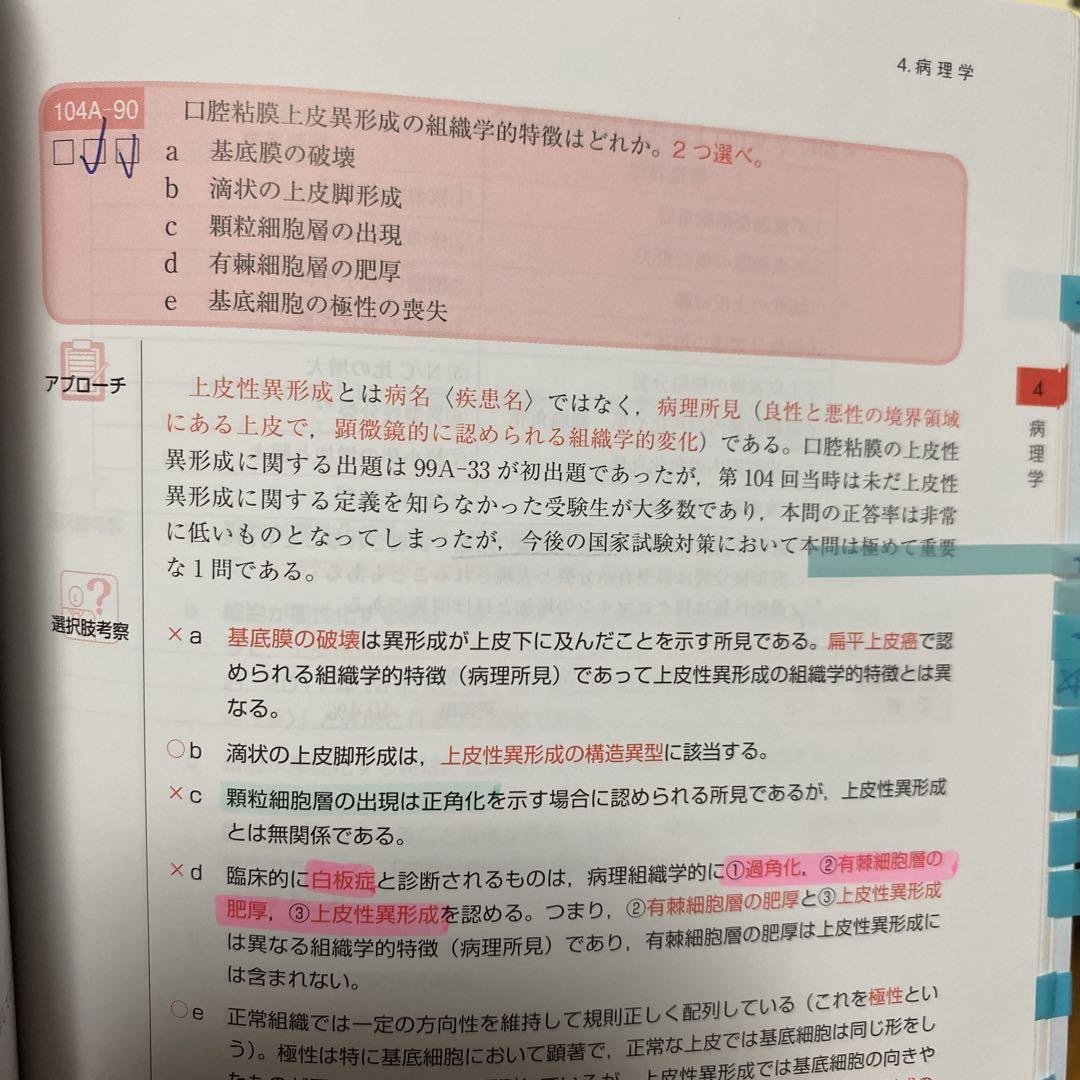 4.病理学
104A-90
口腔粘膜上皮異形成の組織学的特徴はどれか。2つ選べ。
a 基底膜の破壊
b 滴状の上皮脚形成
c 顆粒細胞層の出現
d 有棘細胞層の肥厚
e 基底細胞の極性の喪失
アプローチ
上皮性異形成とは病名〈疾患名〉ではなく，病理所見（良性と悪性の境界領域
にある上皮で，顕微鏡的に認められる組織学的変化）である。口腔粘膜の上皮性
異形成に関する出題は99A-33が初出題であったが，第104回当時は未だ上皮性
異形成に関する定義を知らなかった受験生が大多数であり，本問の正答率は非常
に低いものとなってしまったが，今後の国家試験対策において本問は極めて重要
な1問である。
4
病理学
選択肢考察
×a 基底膜の破壊は異形成が上皮下に及んだことを示す所見である。扁平上皮癌で認
められる組織学的特徴（病理所見）であって上皮性異形成の組織学的特徴とは異
なる。
○b 滴状の上皮脚形成は，上皮性異形成の構造異型に該当する。
×c 顆粒細胞層の出現は正角化を示す場合に認められる所見であるが，上皮性異形成
とは無関係である。
×d 臨床的に白板症と診断されるものは，病理組織学的に①過角化，②有棘細胞層の
肥厚，③上皮性異形成を認める。つまり，②有棘細胞層の肥厚と③上皮性異形成
は異なる組織学的特徴（病理所見）であり，有棘細胞層の肥厚は上皮性異形成に
は含まれない。
○e 正常組織では一定の方向性を維持して規則正しく配列している（これを極性とい
う）。極性は特に基底細胞において顕著で，正常な上皮では基底細胞は同じ形をし
上皮性異形成では基底細胞の向きや